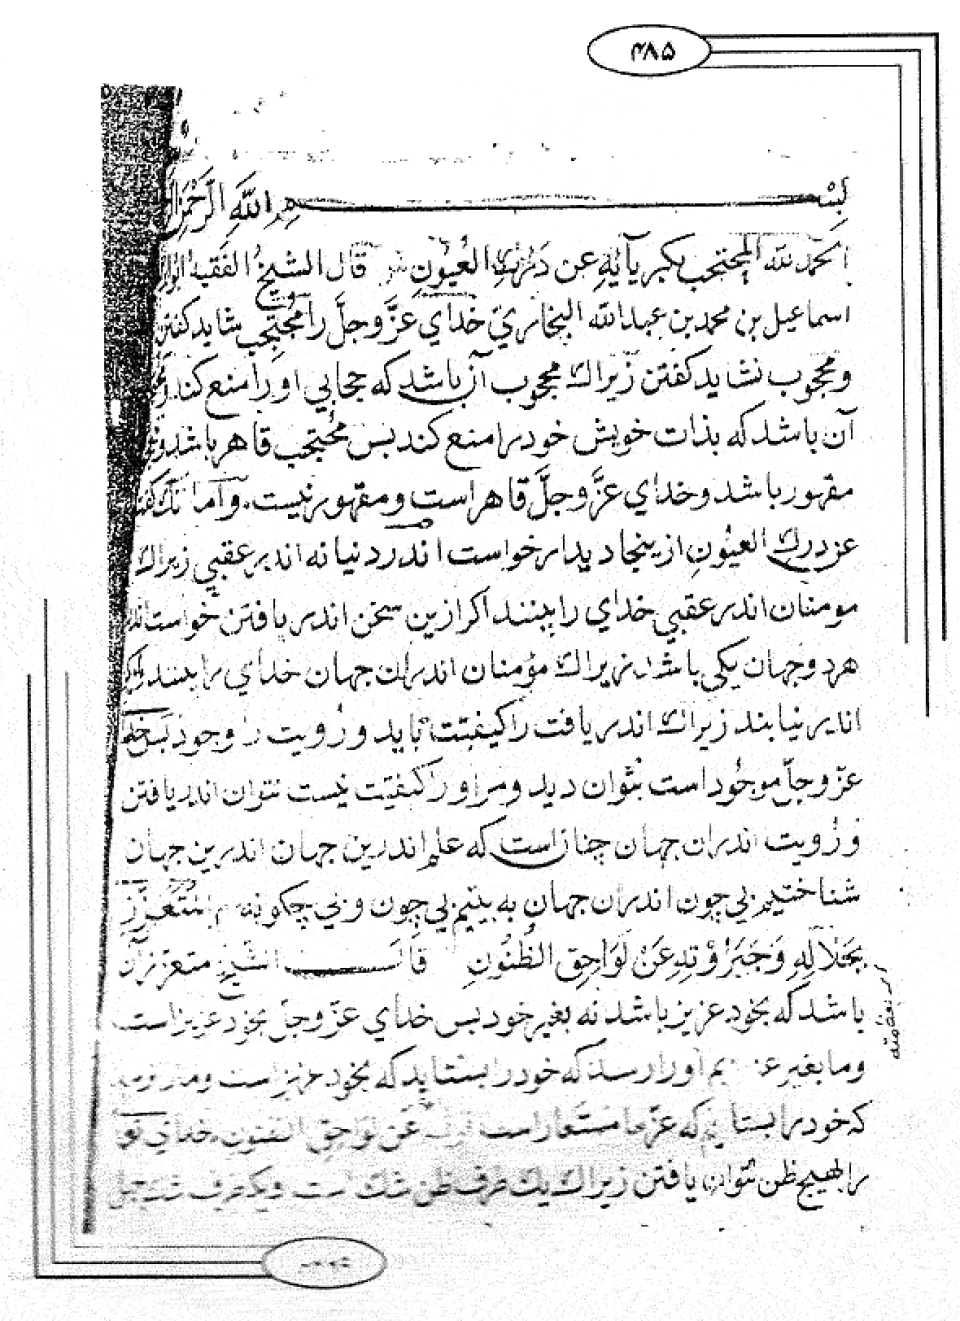 ۴۸۵
بسم الله الرحمن
الحمد لله المحتجب بکبریآیه عن درك العیون قال الشیخ الفقیه
اسماعیل بن محمد بن عبدالله البخاري خدای عزّ وجلّ را محتجب شاید کفتن
و محجوب نشاید کفتن زیراك محجوب آن باشد که حجابی اورا منع کند
آن باشد که بذات خویش خود را منع کند بس محتجب قاهر باشد و
مقهور باشد و خدای عزّ وجلّ قاهر است و مقهور نیست و اما آنك
عن درك العیون ازینجا دیدار خواست اندر دنیا نه اندر عقبی زیراك
مومنان اندر عقبی خدای را ببینند اکر ازین سخن اندر یافتن خواست
هر دو جهان یکی باشد زیراك مؤمنان اندران جهان خدای را ببینند
اندر نیابند زیراك اندر یافت را کیفیت باید و رؤیت را وجود بس
عزّ وجلّ موجود است بتوان دید و مر او را کیفیت نیست نتوان اندر یافتن
و رؤیت اندران جهان چنانست که علم اندرین جهان اندرین جهان
شناختیم بی چون اندران جهان به بینیم بی چون و بی چکونه المتعزّز
بجلاله وجبروته عن لواحق الظنون قال الشیخ متعزز آن
باشد که بخود عزیز باشد نه بغیر خود بس خدای عزّ وجلّ بخود عزیز است
و ما بغیر اورا رسد که خود را بستاید که بخود عزیز است و
که خود را بستاییم که عزّ ما مستعار است قوله عن لواحق الظنون خدای
را بهیچ ظن نتوان یافتن زیراك یك طرف ظن شك است و یکطرف